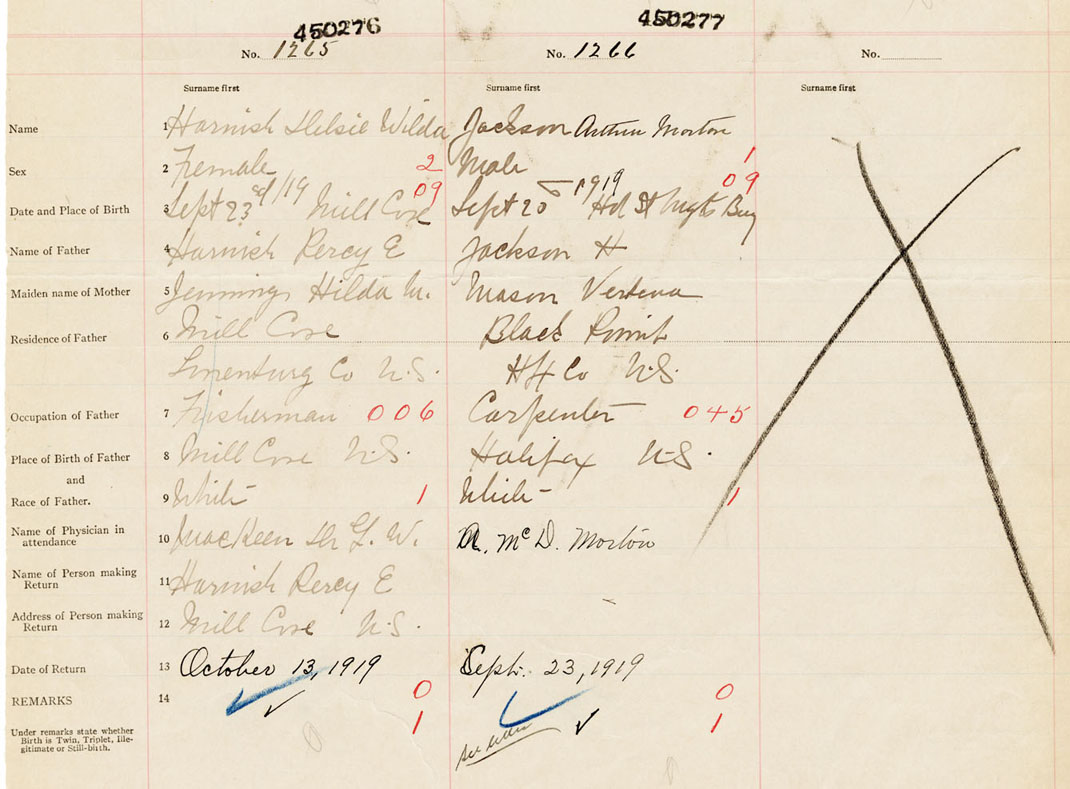 450276 450277
No. 1265 No. 1266 No.
Surname first Surname first Surname first
Name 1 Harnish Delsie Wilda Jackson Arthur Morton
Sex 2 Female 2 Male 1
09 09
Date and Place of Birth 3 Sept 23rd/19 Mill Cove Sept 20 1919 Hd St Mgts Bay
Name of Father 4 Harnish Percy E Jackson H
Maiden name of Mother 5 Jennings Hilda M. Mason Verdena
Residence of Father 6 Mill Cove Black Point
Lunenburg Co N.S. Hfx Co N.S.
Occupation of Father 7 Fisherman 006 Carpenter 045
Place of Birth of Father 8 Mill Cove N.S. Halifax N.S.
and
Race of Father. 9 White 1 White 1
Name of Physician in
attendance 10 MacKeen Dr L. W. A. McD. Morton
Name of Person making
Return 11 Harnish Percy E
Address of Person making
Return 12 Mill Cove N.S.
Date of Return 13 October 13, 1919 Sept. 23, 1919
REMARKS 14 0 0
Under remarks state whether
Birth is Twin, Triplet, Ille-
gitimate or Still-birth. 1 1